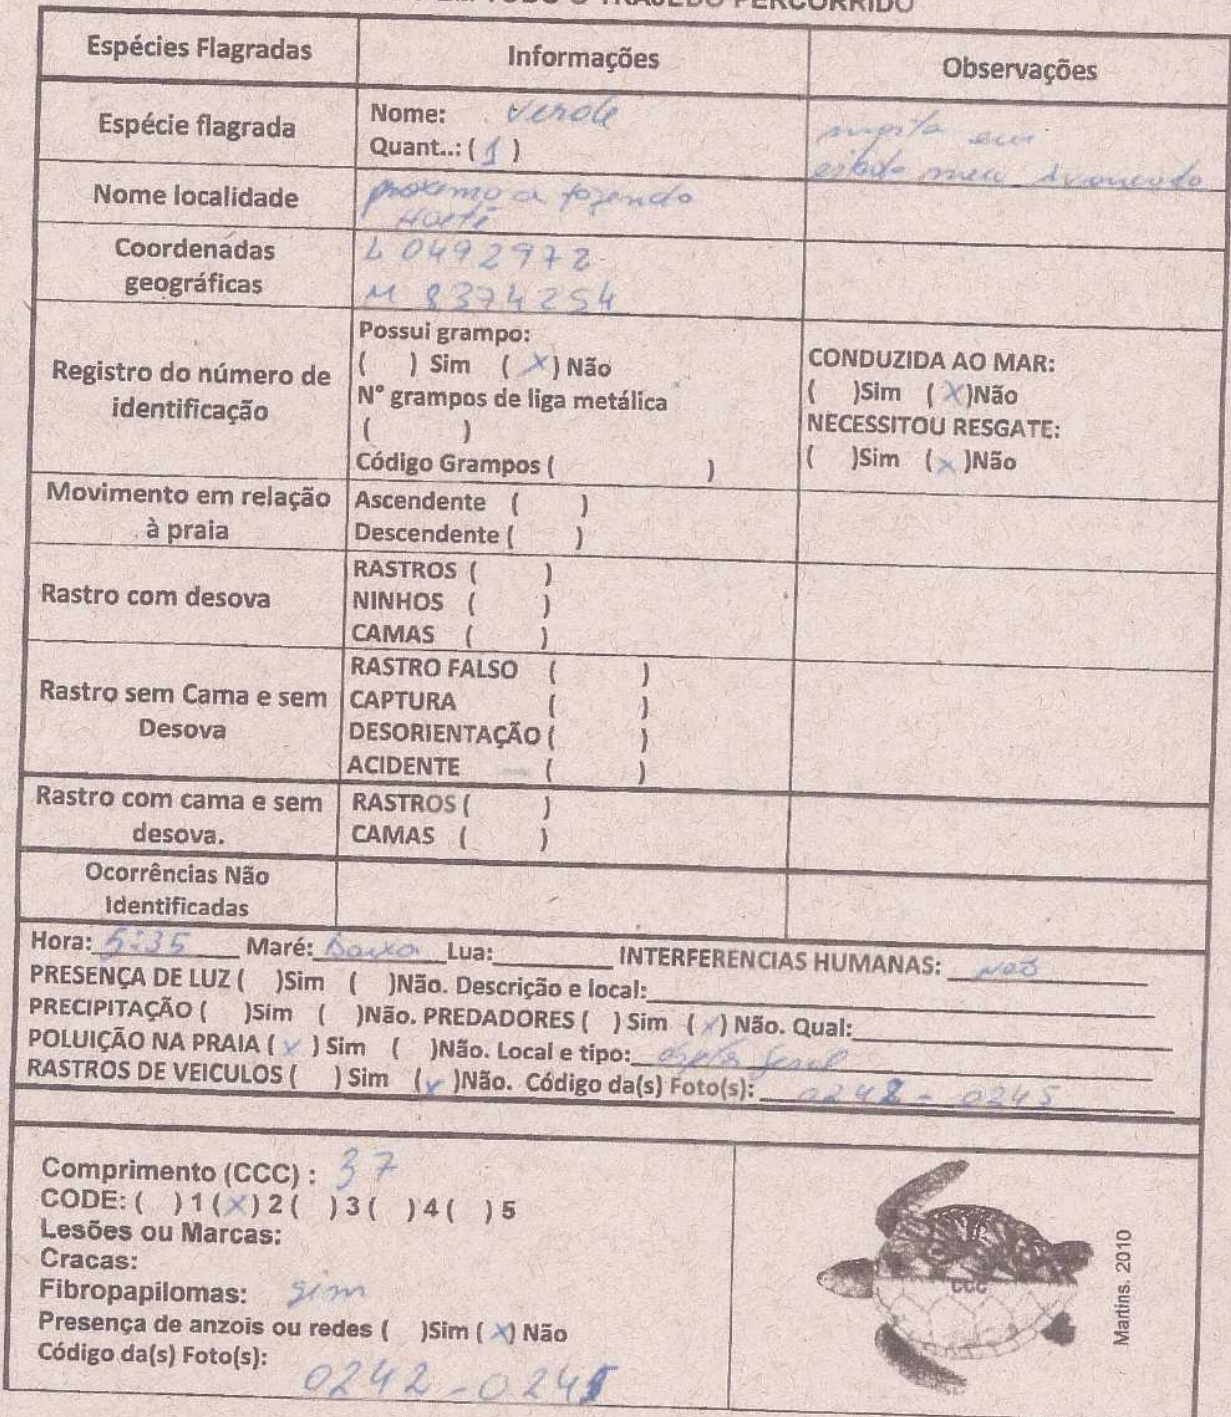 TODO O TRAJEDO PERCORRIDO
Espécies Flagradas Informações Observações
Espécie flagrada
Nome: Verde
Quant..: ( 1 )
morta em
estado meu avancado
Nome localidade
proximo a fazenda
Coordenádas
geográficas
L 0492972
M 8374254
Registro do número de
identificação
Possui grampo:
( ) Sim ( X ) Não
N° grampos de liga metálica
( )
Código Grampos ( )
CONDUZIDA AO MAR:
( )Sim ( X )Não
NECESSITOU RESGATE:
( )Sim ( x )Não
Movimento em relação
à praia
Ascendente ( )
Descendente ( )
Rastro com desova
RASTROS ( )
NINHOS ( )
CAMAS ( )
Rastro sem Cama e sem
Desova
RASTRO FALSO ( )
CAPTURA ( )
DESORIENTAÇÃO ( )
ACIDENTE ( )
Rastro com cama e sem
desova.
RASTROS ( )
CAMAS ( )
Ocorrências Não
Identificadas
Hora: 5:35 Maré: Baixa Lua: INTERFERENCIAS HUMANAS: não
PRESENÇA DE LUZ ( )Sim ( )Não. Descrição e local:
PRECIPITAÇÃO ( )Sim ( )Não. PREDADORES ( ) Sim ( x ) Não. Qual:
POLUIÇÃO NA PRAIA ( x ) Sim ( )Não. Local e tipo:
RASTROS DE VEICULOS ( ) Sim ( x )Não. Código da(s) Foto(s): 0242 - 0245
Comprimento (CCC) : 37
CODE: ( ) 1 ( x ) 2 ( ) 3 ( ) 4 ( ) 5
Lesões ou Marcas:
Cracas:
Fibropapilomas: sim
Presença de anzois ou redes ( )Sim ( x ) Não
Código da(s) Foto(s):
0242 - 0245
CCC
Martins. 2010